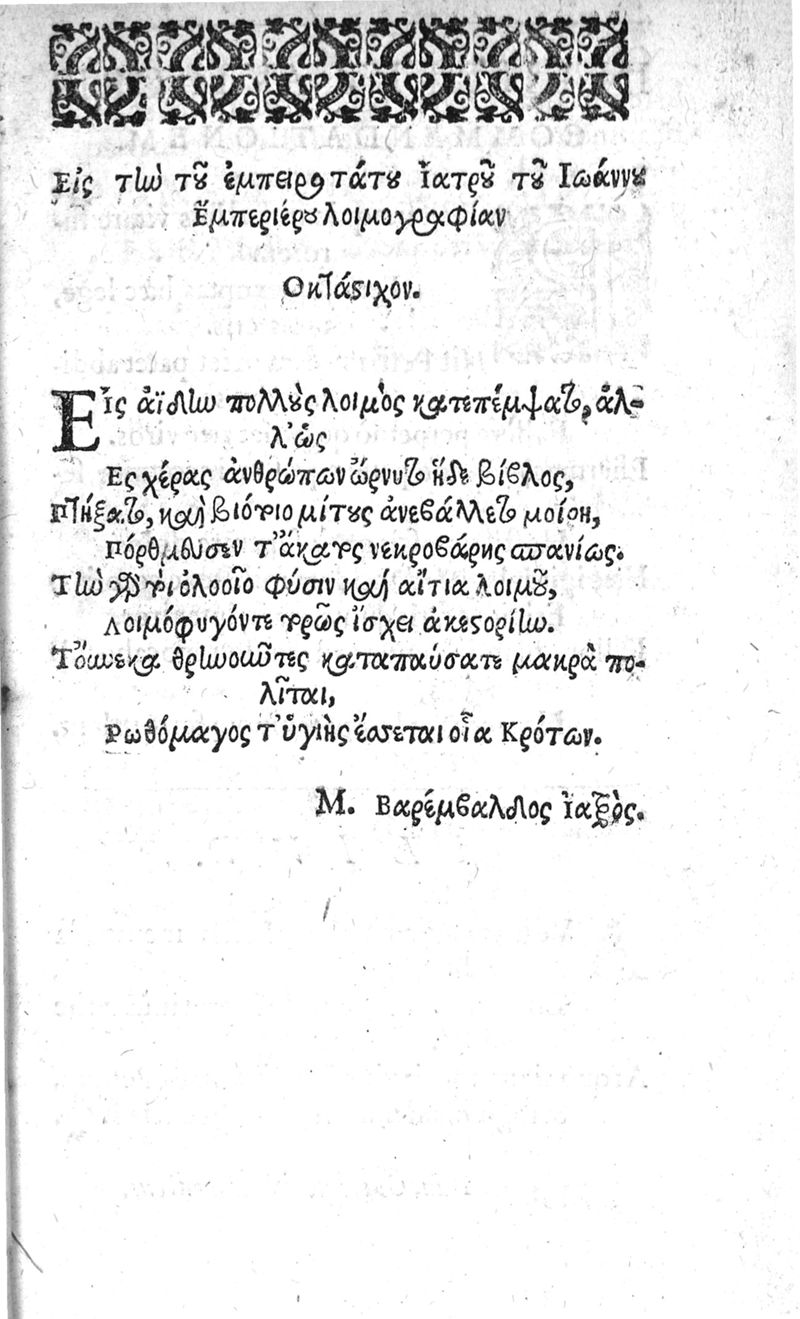 Εἰς τὴν τοῦ ἐμπειροτάτου Ἰατροῦ τοῦ Ἰωάννου
Ἐμπεριέρου λοιμογραφίαν
Οκτάστιχον.
Εἰς ἀΐδην πολλοὺς λοιμὸς κατεπέμψατο, ἀλ-
λ' ὡς
Ες χέρας ἀνθρώπων ὤρνυτο ἥδε βίβλος,
Πτήξατο, καὶ βιότοιο μίτους ἀνεβάλλετο μοίρη,
Πόρθμευσεν τ' νεκροβάρης σπανίως.
Τὴν γὰρ τοι ὀλοοῖο φύσιν καὶ αἴτια λοιμοῦ,
Λοιμόφυγόν τε τορῶς ἴσχει ἀκεστορίην.
Τοὔνεκα θρηνοῦντες καταπαύσατε μακρὰ πο-
λῖται,
Ρωθόμαγος τ' ὑγιὴς ἔσσεται οἷα Κρότων.
Μ. Βαρέμβαλδος ἰατρὸς.